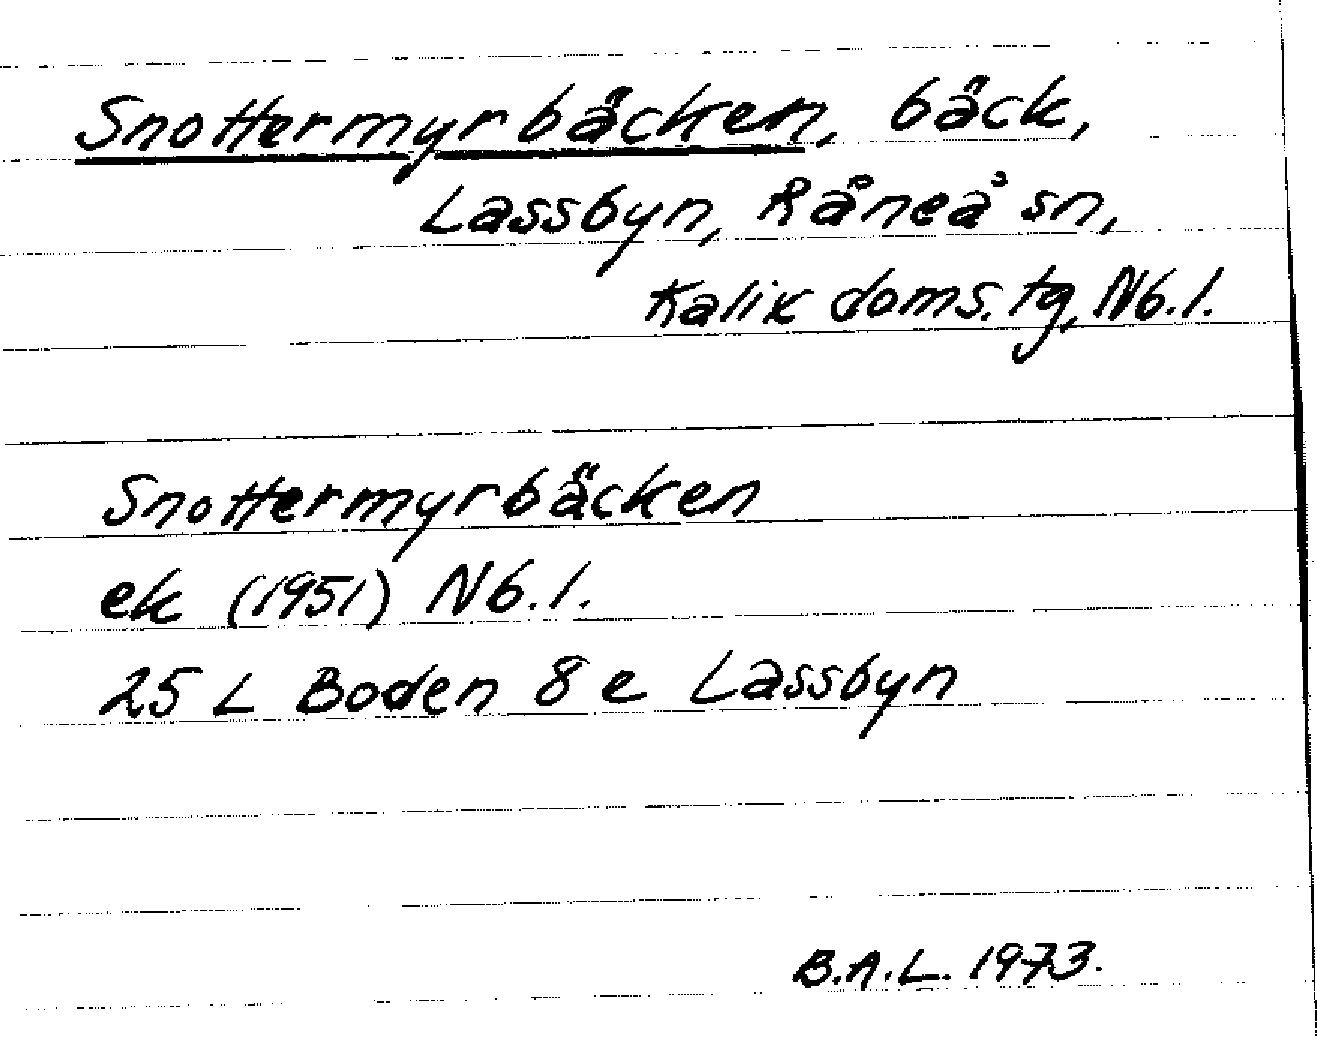 Snottermyrbäcken, bäck,
Lassbyn, Råneå sn,
Kalix doms. tg, Nb. l.
Snottermyrbäcken
ek (1951) Nb. l.
25 L Boden 8 e Lassbyn
B.A.L. 1973.